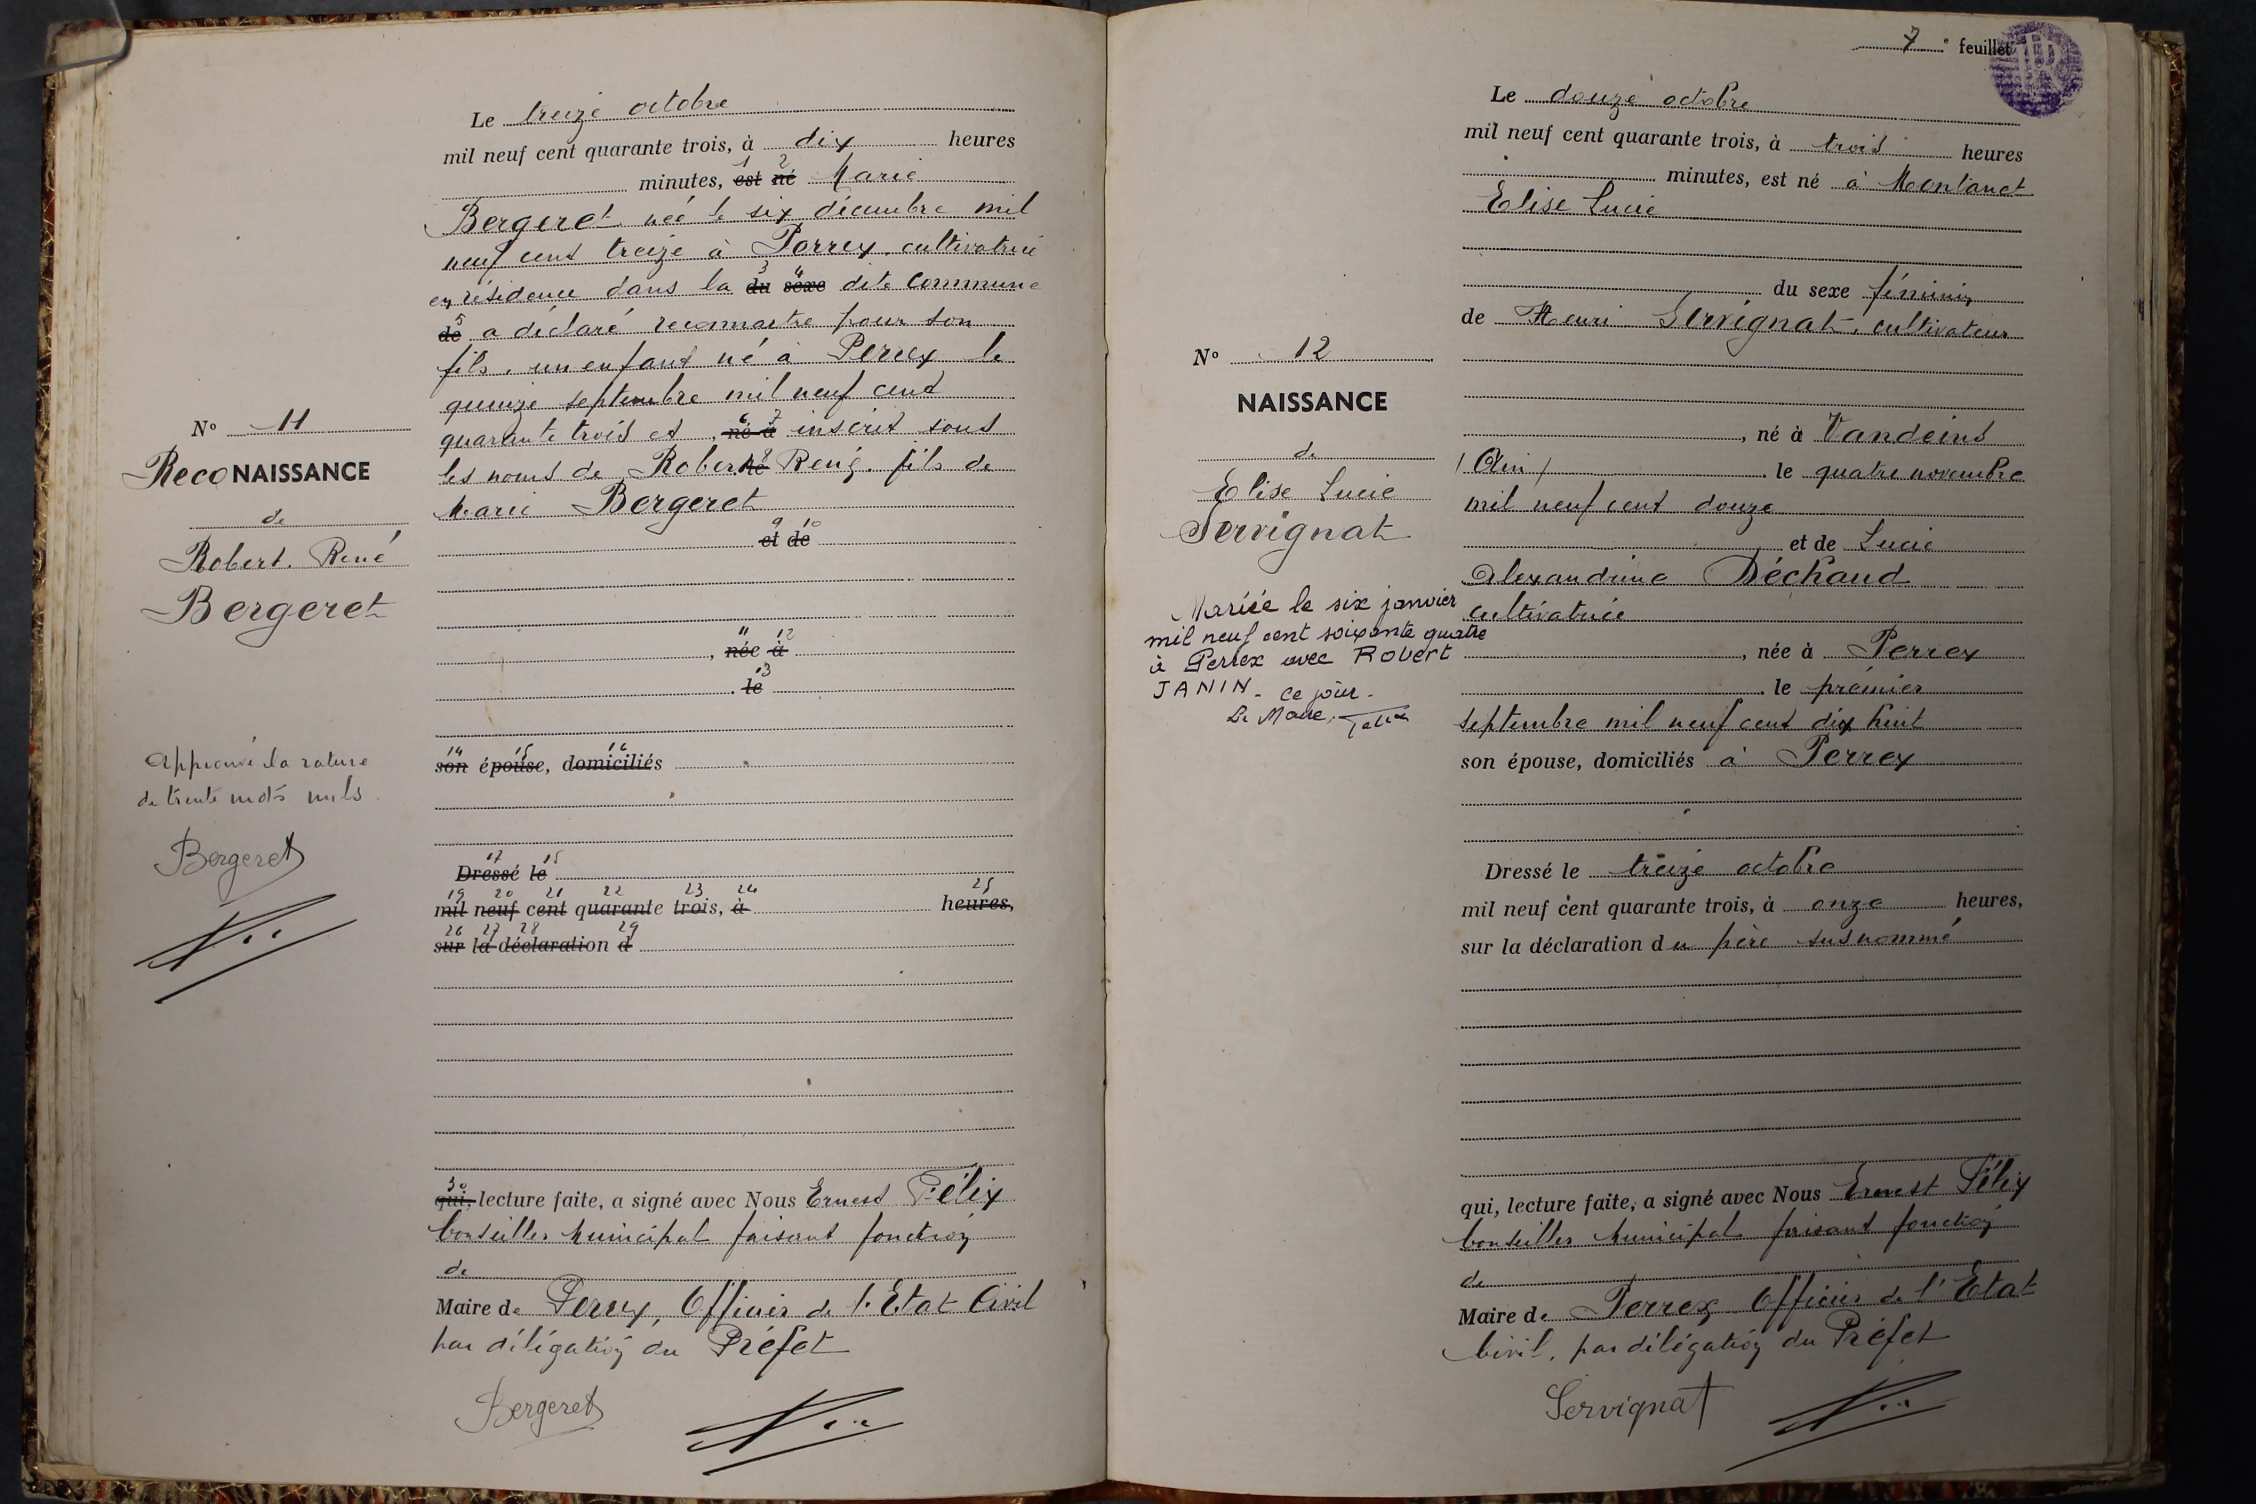 Le treize octobre
mil neuf cent quarante trois, à dix heures
1 2
minutes, est né Marie
Bergeret née le six décembre mil
neuf cent treize à Perrex, cultivatrice
3 4
en résidence dans la du sexe dite commune
5
de a déclaré reconnaitre pour son
fils, un enfant né à Perrex le
quinze septembre mil neuf cent
6 7
quarante trois et , né à inscrit sous
8
les noms de Robert le René, fils de
Marie Bergeret
9 10
et de
11 12
, née à
13
le
14 15 16
son épouse, domiciliés
17 18
Dressé le
19 20 21 22 23 24 25
mil neuf cent quarante trois, à heures,
26 27 28 29
sur la déclaration d
30
qui, lecture faite, a signé avec Nous Ernest Félix
Conseiller Municipal faisant fonction
de
Maire de Perrex, Officier de l'Etat Civil
par délégation du Préfet
Bergeret
N° 11
RecoNAISSANCE
de
Robert René
Bergeret
Approuvé la rature
de trente mots nuls
Bergeret
7e feuillet
Le douze octobre
mil neuf cent quarante trois, à trois heures
minutes, est né à Montanet
Elise Lucie
du sexe féminin
de Henri Servignat, cultivateur
, né à Vandeins
(Ain) le quatre novembre
mil neuf cent douze
et de Lucie
Alexandrine Déchaud
cultivatrice
, née à Perrex
le premier
septembre mil neuf cent dix huit
son épouse, domiciliés à Perrex
Dressé le treize octobre
mil neuf cent quarante trois, à onze heures,
sur la déclaration du père susnommé
qui, lecture faite, a signé avec Nous Ernest Félix
Conseiller Municipal faisant fonction
de
Maire de Perrex Officier de l'Etat
Civil, par délégation du Préfet
Servignat
N° 12
NAISSANCE
de
Elise Lucie
Servignat
Mariée le six janvier
mil neuf cent soixante quatre
à Perrex avec Robert
JANIN. Ce jour.
Le Maire,